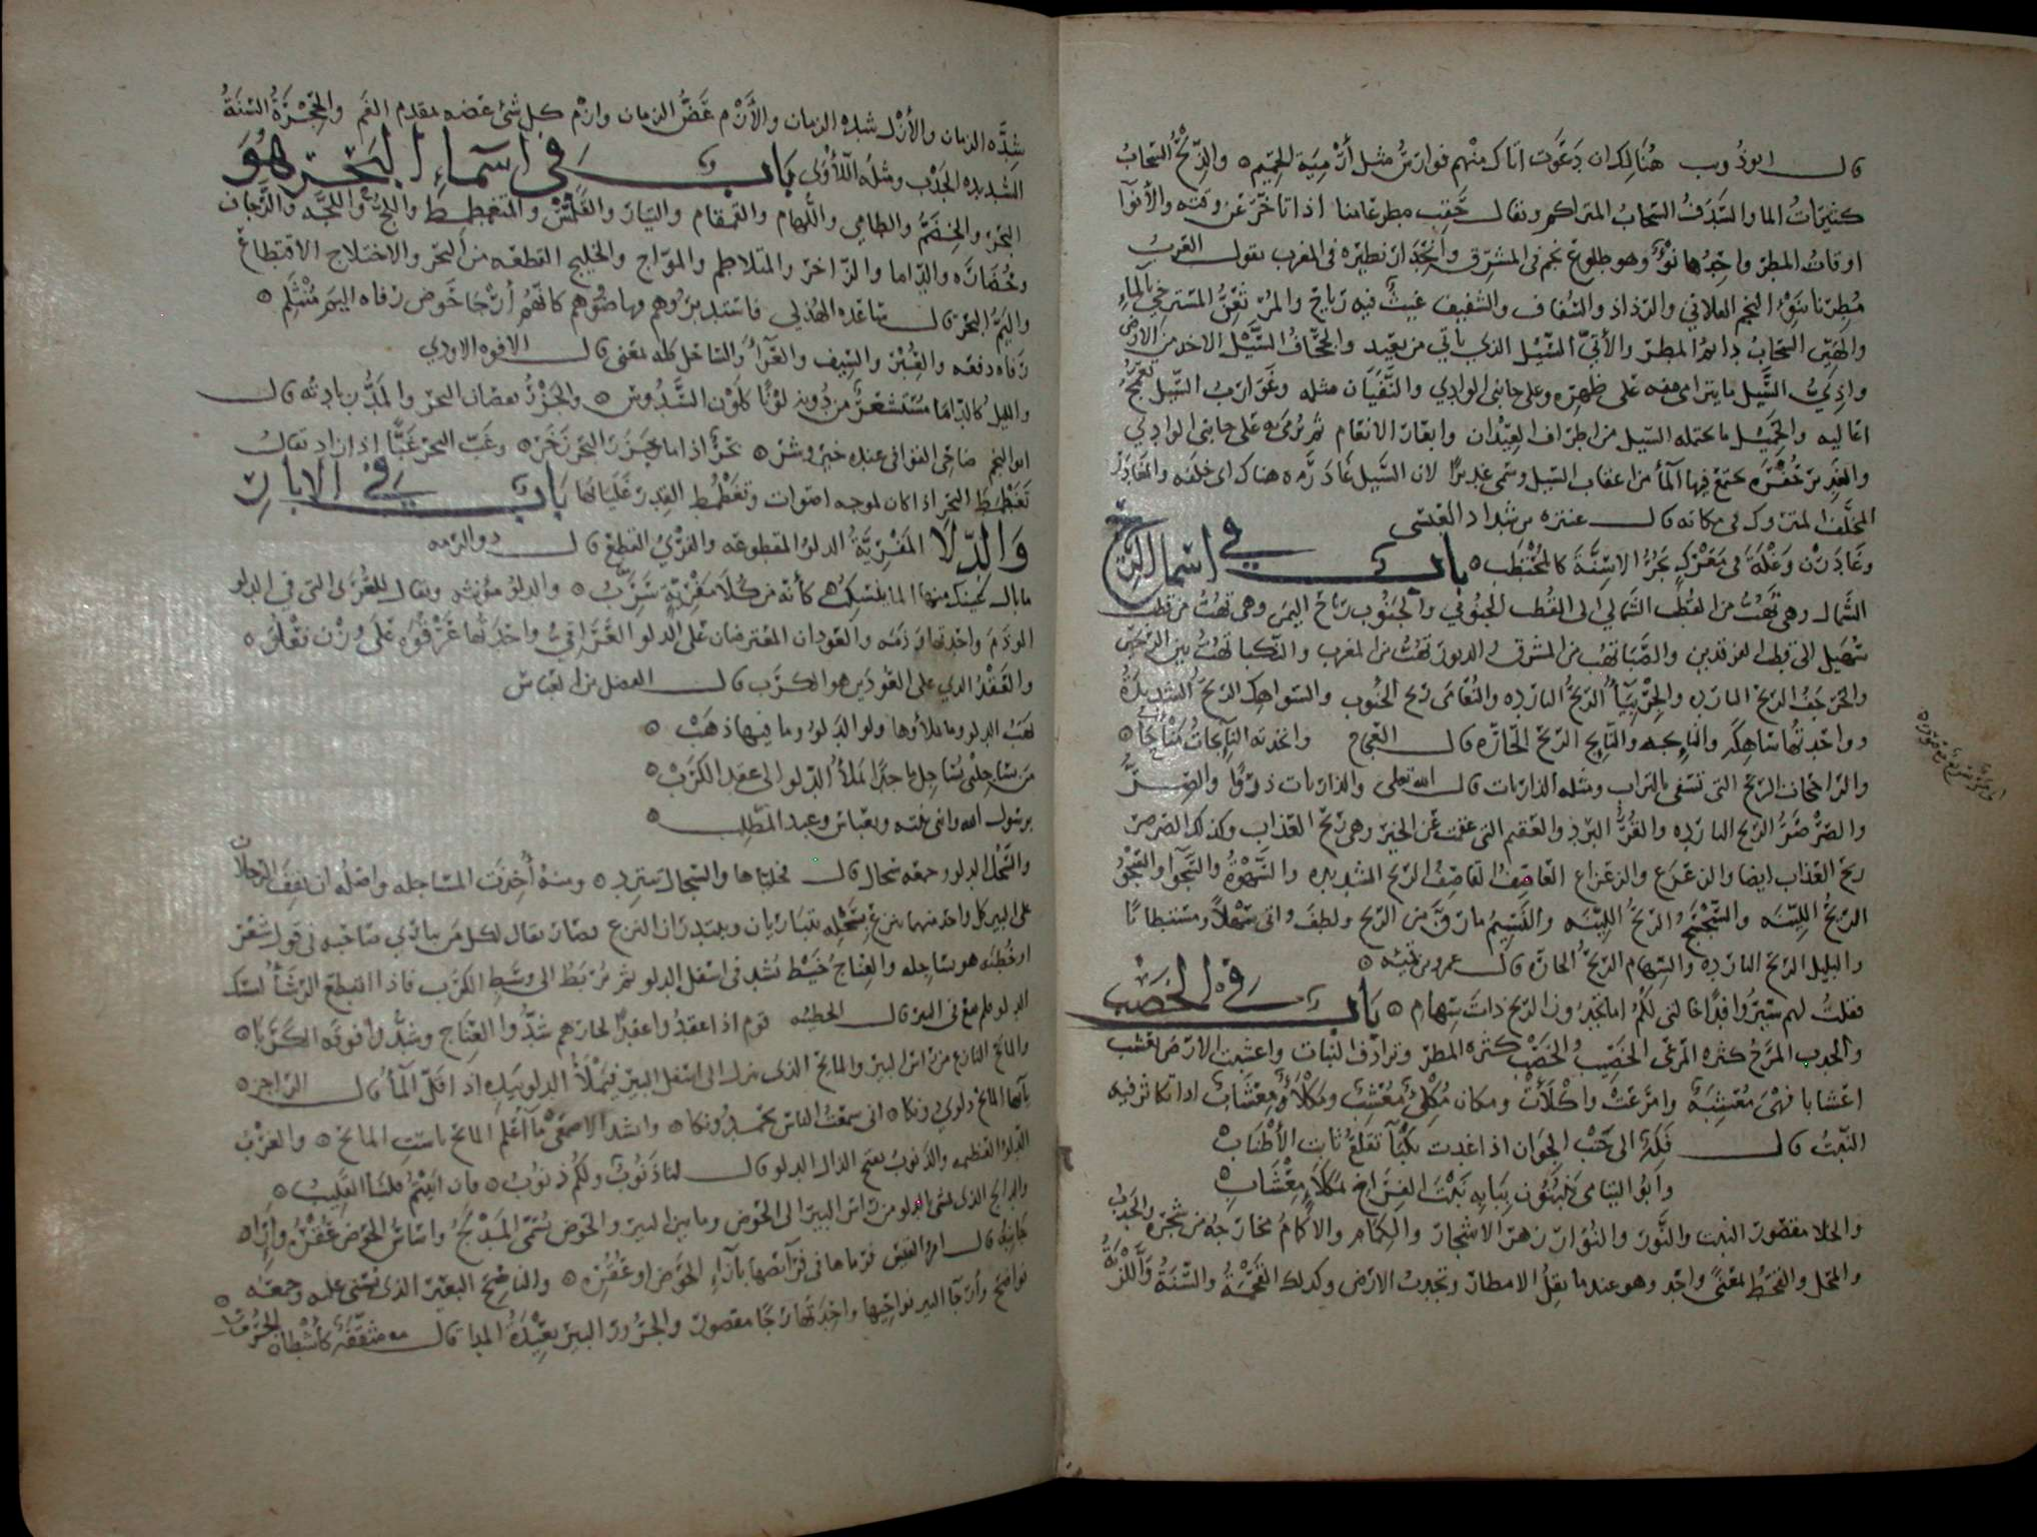 قال ابوذوب هُنَالِكَ ان دَعَوت اتاك منهم فوارسُ مثل أَرْمِيَة الحَمِيم ه والرِّيحُ السَّحابُ
كثيرَاتُ الما والسَّدَفُ السَّحابُ المتراكم ويقال حَقِبَ مطر عامنا اذا تأخّر عن وقته والأنوآ
اوقاتُ المطر واحِدُها نَوْءٌ وهو طلوع نجم فى المشرق وانحِدَار نظيره فى المغرب يقول العَرَبُ
مُطِرنا بنَوْءِ النجم الفلاني والرذاذ والشفاف والشفيف غيثٌ فيه رياح والمُرْثَعِنُّ المسترخي بالماءِ
والهَتِن السحابُ دائمُ المطر والأتيُّ السَّيل الذي ياتي من بعيد والجُحَافُ السَّيْل الاخذ من الارض
واذِيُّ السَّيل ما يترامى معه على ظهره وعلى جانبي الوادي والنَّفَيَان مثله وغَوَارِبُ السَّيل
اعاليه والحَمِيْل ما يحمله السيل من اطراف العيدان وابعار الانعام ثم يُرمى به على جانبي الوادي
والغدير حُفْرَه يجتمع فيها المآ من اعقاب السيل وسمى غديرًا لان السَّيل غَادَرَه هناك اى خلفه والمُغَادَرُ
المخلَّف المتروك فى مكانه قال عنتره بن شداد العَبْسى
وغَادَرْن وَعْلَةَ فى مَعْرَكٍ يَجُرُّ الاسِنَّةَ كالمُحْتَطِب ه باب في اسما الرياح
الشَّمال وهى تَهُبُّ من القُطب الشَّمالي الى القُطب الجنوبي والجنوب رياح اليمن وهى تهُبّ من قطب
سُهَيل الى قطب الفرقدين والصَّبَا تهب من المشرق والدبور تهُبُّ من المغرب والنَّكبا تهُبُّ بين الريحين
والحَرجَفُ الريح البارده والجِرْبِيَآءُ الريحُ البارده والنُعَامَى ريح الجُنوب والسّواهك الريح الشديدَةُ
وواحِدتُها سَاهِكَه والبارحة والبارح الريح الحارّه قال العجاج واتخذته النآئجاتُ مَنْأَجَا ه
والرَّامحات الريحُ التى تسفى بالتراب ومثله الذاريات قال الله تعلى والذاريات ذروًا والصِرُّ
والصَّرْصَرُ الريح البارده والقُرُّ البرد والعقيم التى عقمت عن الخير وهى ريح العَذاب وكذلك الصرصر
ريح العَذاب ايضا والزَعزَع والزعزاع العَاصِف القاصِفُ الريح الشديده والسَّهْوَةُ والسَّجْوَآ والسَّجْوُ
الريحُ الليّنه والسَّجْسَجُ الريحُ الليّنه والنَّسِيمُ ما رَقَّ من الريح ولطف واتى سَهْلاً ومستطابًا
والبليل الريح البارده والسِّهام الريحُ الحارّه قال عمرو بن قميئه ه
فقلتُ لهم سِيرُوا فِدًا خالتى لكُم اما تجِدُون الريح ذاتَ سِهام ه باب في الخصب
والجدب المَرْجُ كثرة المَرعَى الخَصِيبُ والخِصْب كثره المطر وترادُف النبات واعشبت الارض تعشب
اعشابا فهي مُعْشِبَةٌ وامْرَعَتْ واكْلأَتْ ومكان مُكْلِئٌ مُعْشِبٌ ومَكْلأَةٌ مِعْشَابٌ اذا تكاثر فيه
النبْتُ قال فَكَرَّ الى جَنْبِ الخِوَان اذ اغدت نكْبَآ تقلعُ ثابت الأَطْنَابْ
وأبو اليتامى يَنْبُتُون ببابه نَبْتَ الفِرَاخِ لمَكْلأٍ مِعْشَابِ ه
والخلا مقصور النبت والنَّور والنُوَّار زهرُ الاشجار والكِمَام والاكمامُ مخارجُه من شجره والجَدْبُ
والمَحل والقَحطُ لمعنًى واحِد وهو عندما يقلُّ الامطار وتجدب الارض وكذلك القُحْمَةُ والسَّنَةُ والَّلزْبَةُ
شِدَّه الزمان والأزْل شده الزمان والأَزْم عَضُّ الزمان وازْم كل شئ عضه بمقدم الفَم والحَجْرَةُ السَّنَةُ
الشديده الجَدْب ومثله اللأوَى باب في اسمآءِ البَحْر هُوَ
البحْر والخِضَمُّ والطامي واللُّهام والقمقام والتيار والقَلَمَّسُ والمتغطمِط واللُّجُّ واللُّجَّه والرَّجاف
وخُضَارَه والدّاما والزّاخر والمتلاطم والموّاج والخليج القطعَه من البَحر والاختلاج الاقتطاع
واليَمُّ البَحر قال ساعده الهُذلي فاستدبروُهم فهاضُوهم كانَّهمُ أَرْجَا خَوضٍ زفاه اليم مُنْثَلِم ه
زَفَاه دفعه والعِبْر والسِّيف والعَرَآءُ والسَاحل كله بمعنى قال الافوه الاودي
والليل كالدّامَا مُسْتَشعَرٌ من دُونه لونًا كلَوْن السَّدُوس ه والجَزْرُ نقصَان البحر والمَدُّ زيادته قال
ابو النجم صَاحِي القوافى عنده خير وشر ه بحرٌ اذا ما جَزَرَ البَحر زَخَر ه وعَبّ البَحر عَبًّا اذا زاد يقالُ
تَغَطْمَطَ البَحر اذا كان لموجه اصوات وتغطْمُطُ القِدر غَليَانُها باب في الابار
وَالدِّلَا المَفْرِيَّةُ الدلو المقطوعه والفَرْيُ القَطع قال ذو الرمه
ما بال عينك منها الما ينسَكِبُ كأنه من كُلَى مَفْرِيَّةٍ سَرِبُ ه والدلو مؤنثه ويقال للعُرَى التى فى الدلو
الوَذَمَ واحِدتها وَذَمَه والعُودان المعترضان على الدلو العَرَاقِيُ واحِدَتُها عَرْقُوَه على وزن فَعْلُوَه
والعَقْدُ الذي على العُودَين هو الكَرَب قال الفضل بن العَباس
برسول الله وابنى بنته وبعَباس وعبد المطّلِب ه
مَن يسَاجلنى يسَاجل ماجدًا يَملأُ الدلو الى عقد الكَرَبْ ه
والسَّجْلُ الدلو وجمعه سِجال قال
على البير كل واحد منهما ينزع بِسَجْلِه يتبَاريَان ويبتدران النزع فصَار يقال لكل من يباري صَاحِبه فى قول شعر
او خُطبَه هو يسَاجله والعِنَاجُ خَيط يُشد فى اسفل الدلو ثم يُربَط الى وسَط الكَرَب فاذا انقطع الرشَآءُ امسَك
الدلو فلم يقع فى البير قال الحطيئه قوم اذا عقدُوا عقدًا لجارهم شدُّوا العِنَاج وشدُّوا فوقه الكَرَبَا ه
والماتح النازع من راس البير والمايح الذى ينزل الى اسفل البير فيَملأُ الدلو بيَده اذا قلّ المآءُ قال الراجز ه
يايها المايح دلوى دونكا ه انى سمعتُ الناس يحمدُونكا ه وانشد الاصمَعى مَا اَعْلَم الماتح باست المايح ه والغَرْبُ
الدلو العَظيمه والذَنوبُ بفتح الذال الدلو قال لنا ذَنُوبٌ ولكم ذنُوبُ ه فان ابيتُمُ فلنَا القَليبُ ه
والدالج الذى يمشى بالدلو من راس البير الى الحَوض وما بين البير والحوض يُسَمَّى المَدْلَجُ واسَاسُ الحَوض عُقْرُه وازآء
جَانبه قال امرؤ القيس فرماها فى فرآئصها بازَآءِ الحَوض او عُقُرِه ه والناضِحُ البَعير الذى يُسنى عليه وجمعَه
نواضح وأَرجَآ البير نواحِيها واحِدَتها رجًا مقصور والجَرُور البير بعِيْدَةُ المدا قال